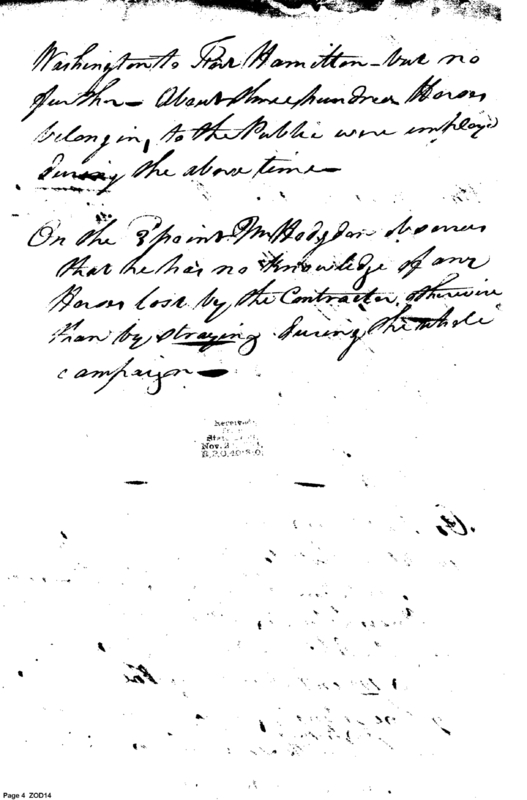 Washington to Fort Hamilton - but no
further - About three hundred Horses
belonging to the Public were employed
during the above time -
On the 3 point Mr Hodgdon observes
that he has no knowledge of any
Horses lost by the Contractor, otherwise
than by straying during the whole
campaign -
Received
from
State
Nov. 2
Page 4 ZOD14